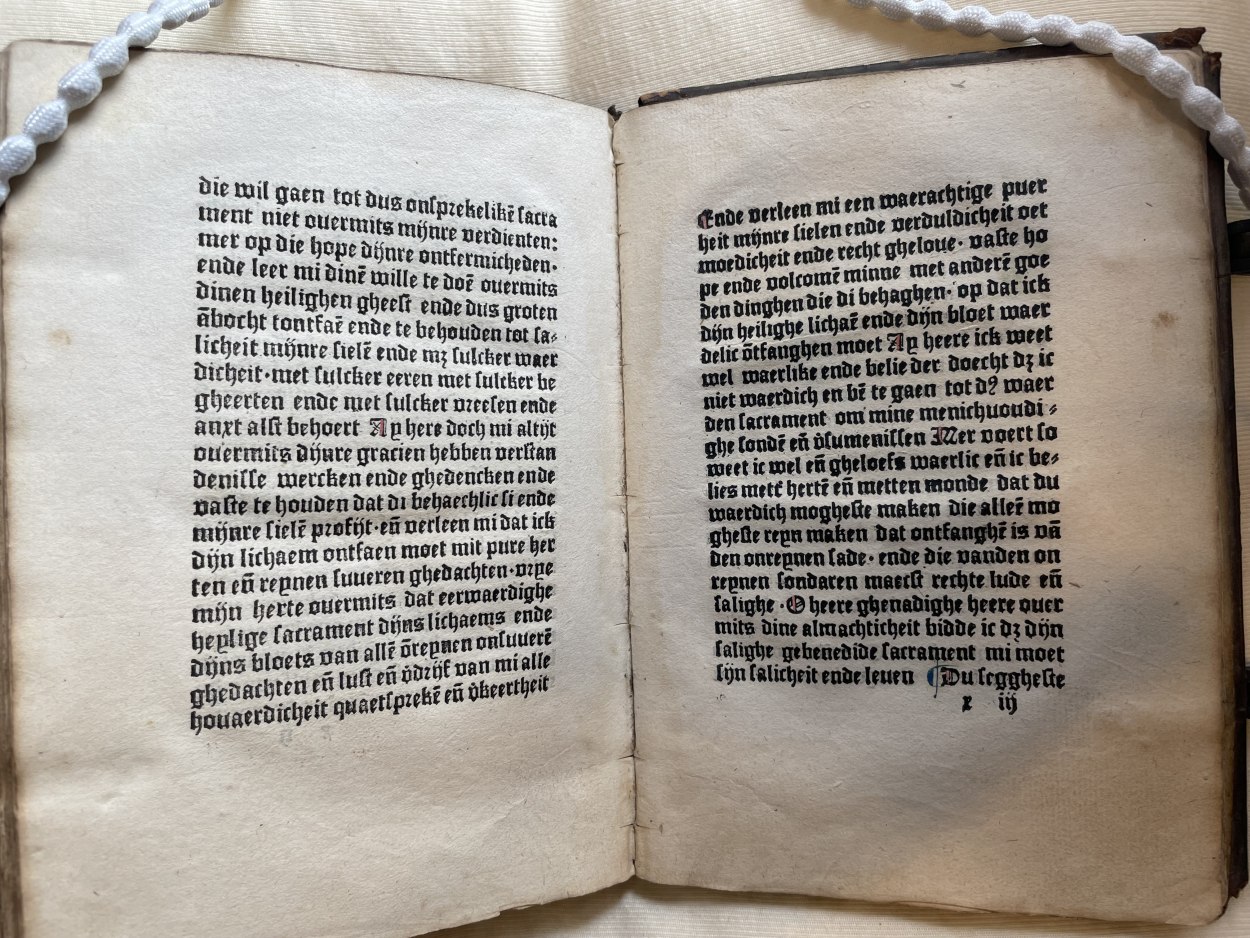 die wil gaen tot dus onsprekelikē sacra
ment niet ouermits mijnre verdienten:
mer op die hope dijnre ontfermicheden·
ende leer mi dinē wille te doē ouermits
dinen heilighen gheest ende dus groten
ābocht tontfaē ende te behouden tot sa⸗
licheit mijnre sielē ende mꝫ sulcker waer
dicheit·met sulcker eeren met sulcker be
gheerten ende met sulcker vreesen ende
anxt alst behoert Ay here doch mi altijt
ouermits dijnre gracien hebben verstan
denisse wercken ende ghedencken ende
vaste te houden dat di behaechlic si ende
mijnre sielē profijt·eñ verleen mi dat ick
dijn lichaem ontfaen moet mit pure her
ten eñ reynen suueren ghedachten·vrye
mijn herte ouermits dat eerwaerdighe
heylige sacrament dijns lichaems ende
dijns bloets van allē ōreynen onsuuerē
ghedachten eñ lust eñ v̄drijf van mi alle
houaerdicheit quaetsprekē eñ v̄keertheit
Ende verleen mi een waerachtige puer
heit mijnre sielen ende verduldicheit oet
moedicheit ende recht gheloue· vaste ho
pe ende volcomē minne met anderē goe
den dinghen die di behaghen· op dat ick
dijn heilighe lichaē ende dijn bloet waer
delic ōtfanghen moet Ay heere ick weet
wel waerlike ende belie der doecht dꝫ ic
niet waerdich en bē te gaen tot dꝰ waer
den sacrament om mine menichuoudi⸗
ghe sondē eñ v̄sumenissen Mer voert so
weet ic wel eñ gheloefs waerlic eñ ic be⸗
lies mett hertē eñ metten monde dat du
waerdich mogheste maken die alleē mo
gheste reyn maken dat ontfanghē is vā
den onreynen sade· ende die vanden on
reynen sondaren maecst rechte lude eñ
salighe ·O heere ghenadighe heere ouer
mits dine almachticheit bidde ic dꝫ dijn
salighe gebenedide sacrament mi moet
sijn salicheit ende leuen Du seggheste
x iij